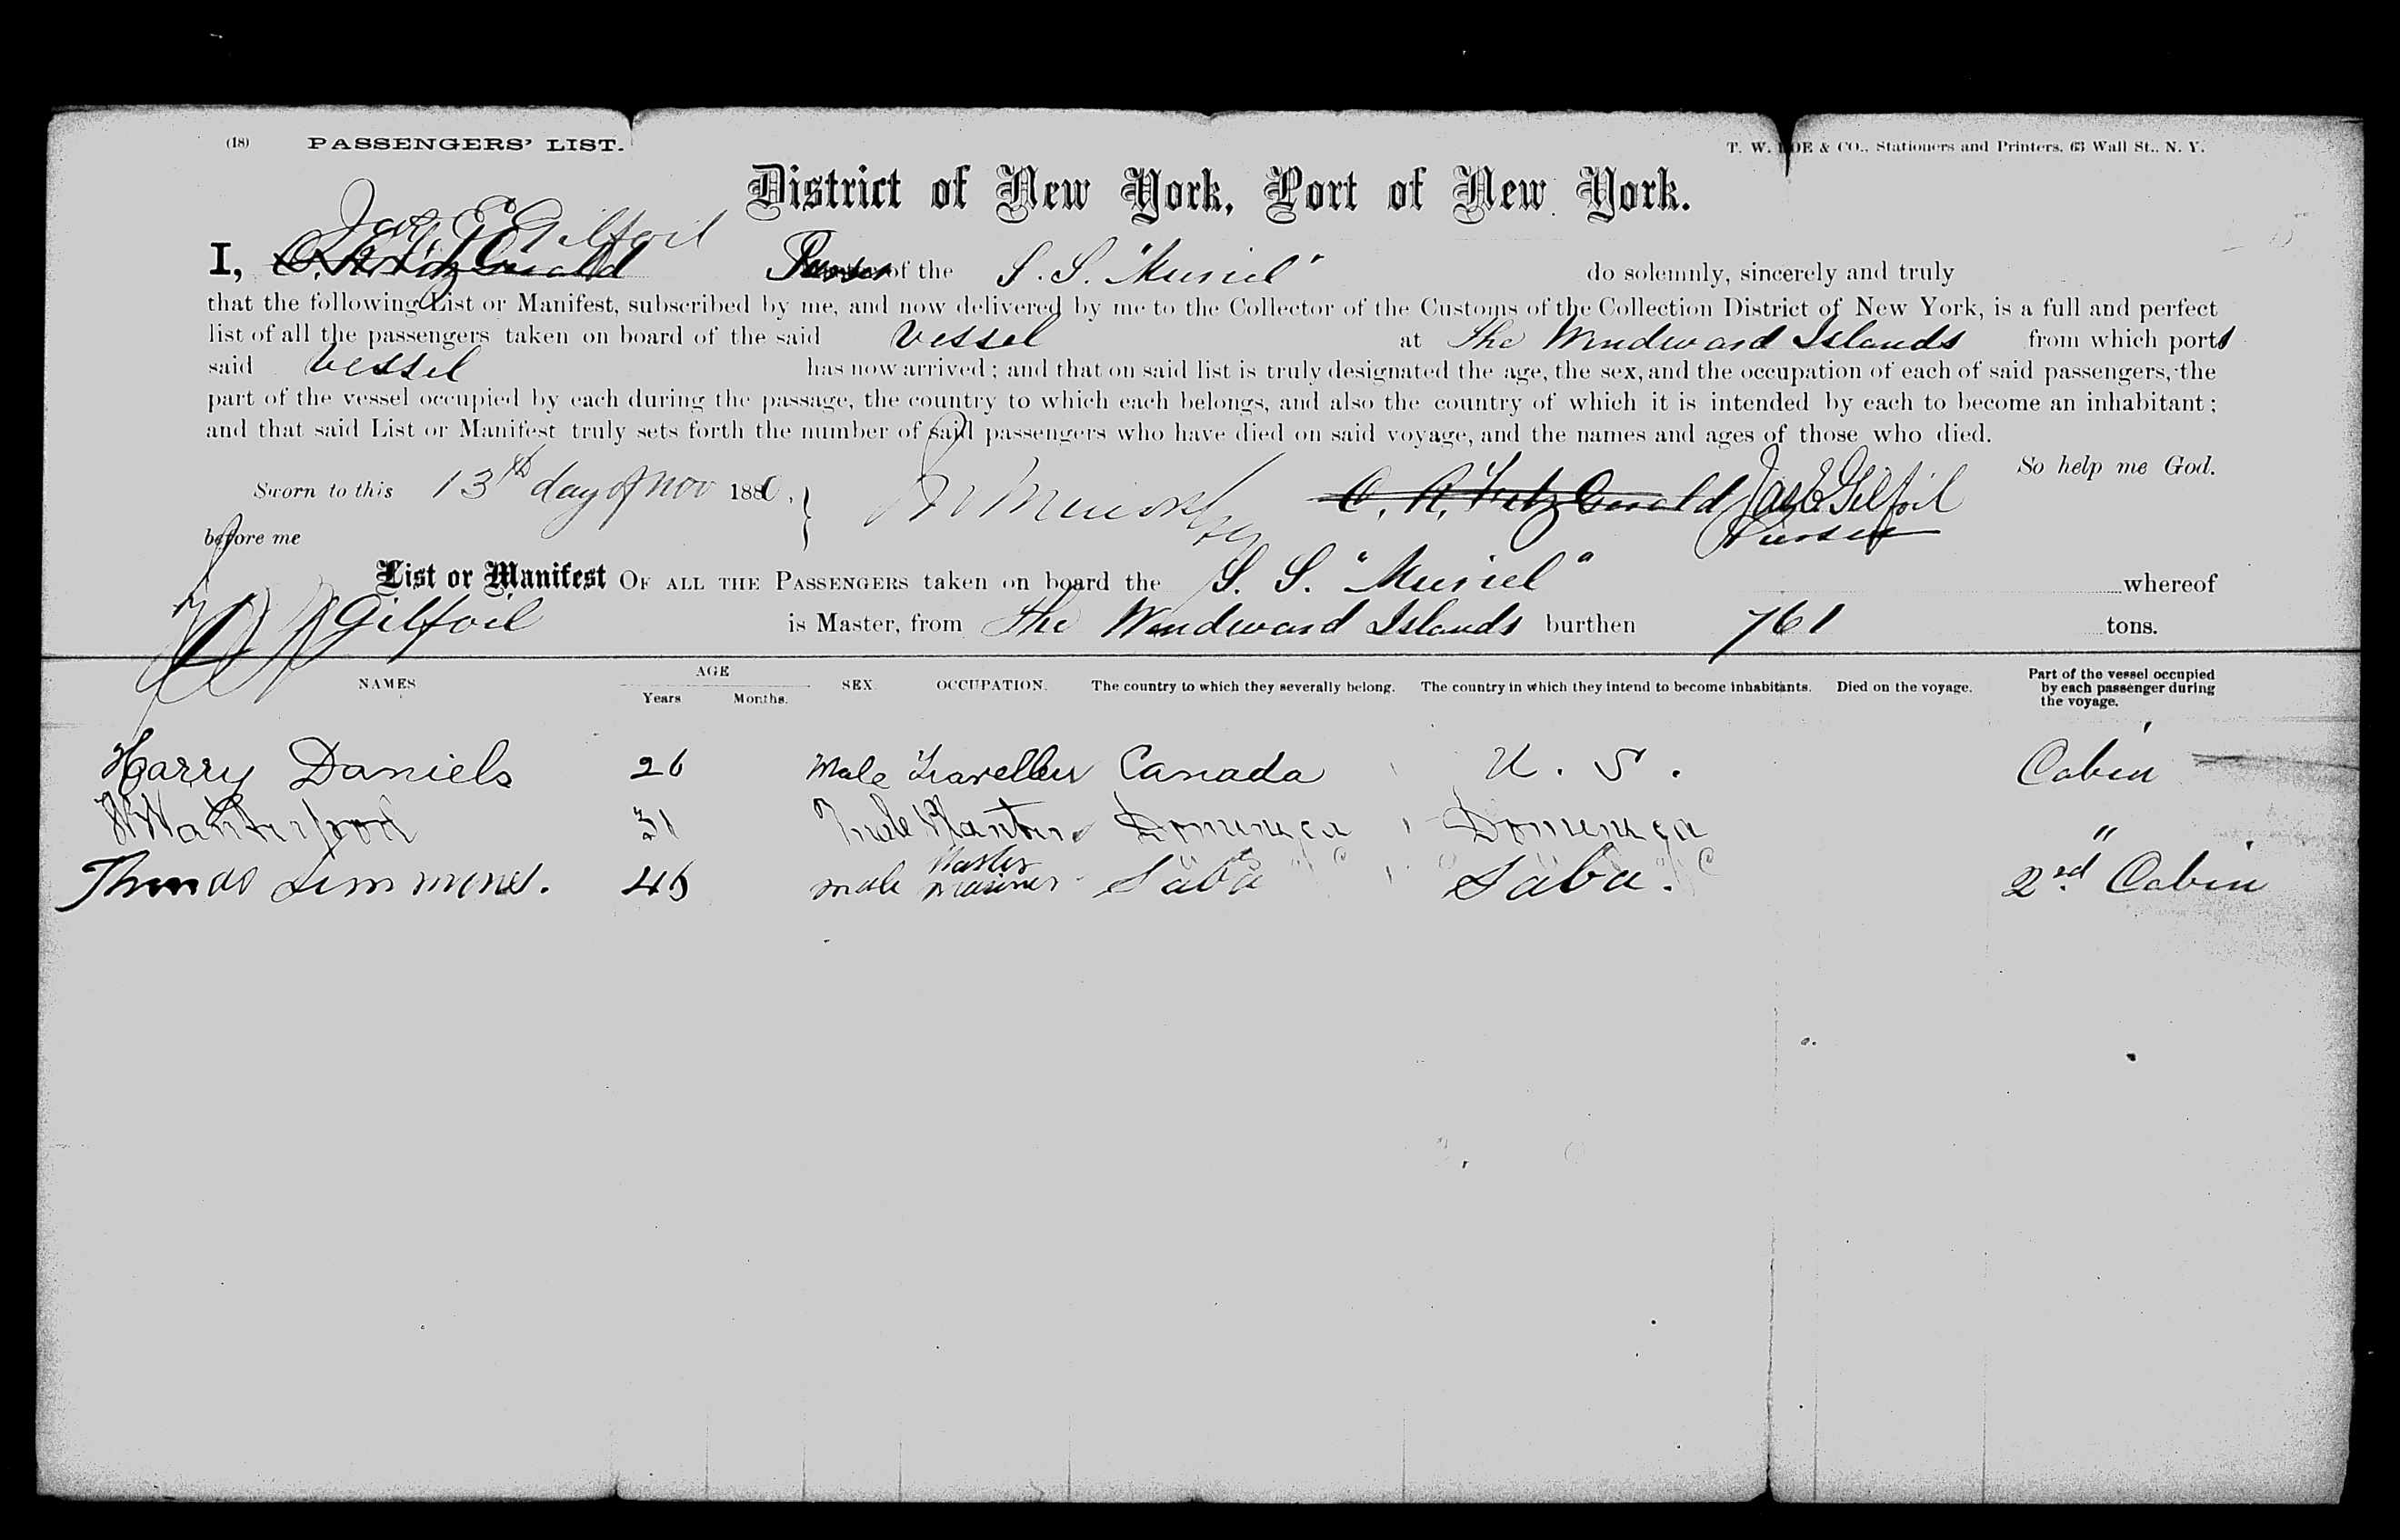 (18) PASSENGERS' LIST.
T. W. & CO., Stationers and Printers, 63 Wall St., N. Y.
District of New York, Port of New York.
Jas. E Gilfoil
I, C. R. Fitz Gerald Purser of the S. S. "Muriel" do solemnly, sincerely and truly
that the following List or Manifest, subscribed by me, and now delivered by me to the Collector of the Customs of the Collection District of New York, is a full and perfect
list of all the passengers taken on board of the said Vessel at the Windward Islands from which ports
said Vessel has now arrived; and that on said list is truly designated the age, the sex, and the occupation of each of said passengers, the
part of the vessel occupied by each during the passage, the country to which each belongs, and also the country of which it is intended by each to become an inhabitant;
and that said List or Manifest truly sets forth the number of said passengers who have died on said voyage, and the names and ages of those who died.
So help me God.
Sworn to this 13th day of Nov 1880, C. R. Fitz Gerald Jas E Gilfoil
before me Purser
List or Manifest OF ALL THE PASSENGERS taken on board the S. S. "Muriel" whereof
Gilfoil is Master, from the Windward Islands burthen 761 tons.
NAMES AGE Years Months. SEX. OCCUPATION. The country to which they severally belong. The country in which they intend to become inhabitants. Died on the voyage. Part of the vessel occupied by each passenger during the voyage.
Harry Daniels 26 Male Traveller Canada U. S. Cabin
31 Male Planter Dominica Dominica "
Thomas Simmons. 45 male Master Mariner Saba Saba. 2nd Cabin